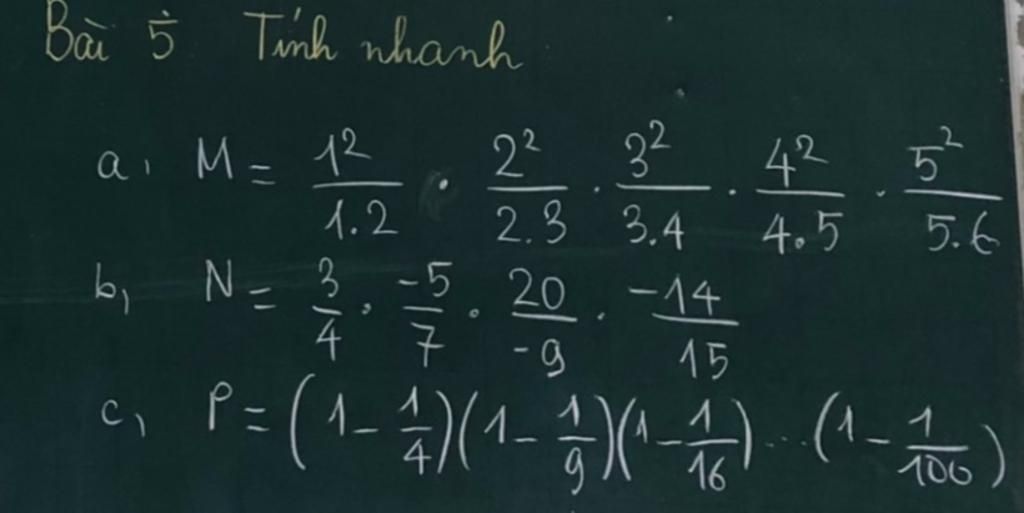 Bài 5 Tính nhanh
a, M = \frac{1^2}{1.2} . \frac{2^2}{2.3} . \frac{3^2}{3.4} . \frac{4^2}{4.5} . \frac{5^2}{5.6}
b, N = \frac{3}{4} . \frac{-5}{7} . \frac{20}{-9} . \frac{-14}{15}
c, P = (1 - \frac{1}{4})(1 - \frac{1}{9})(1 - \frac{1}{16}) ... (1 - \frac{1}{100})